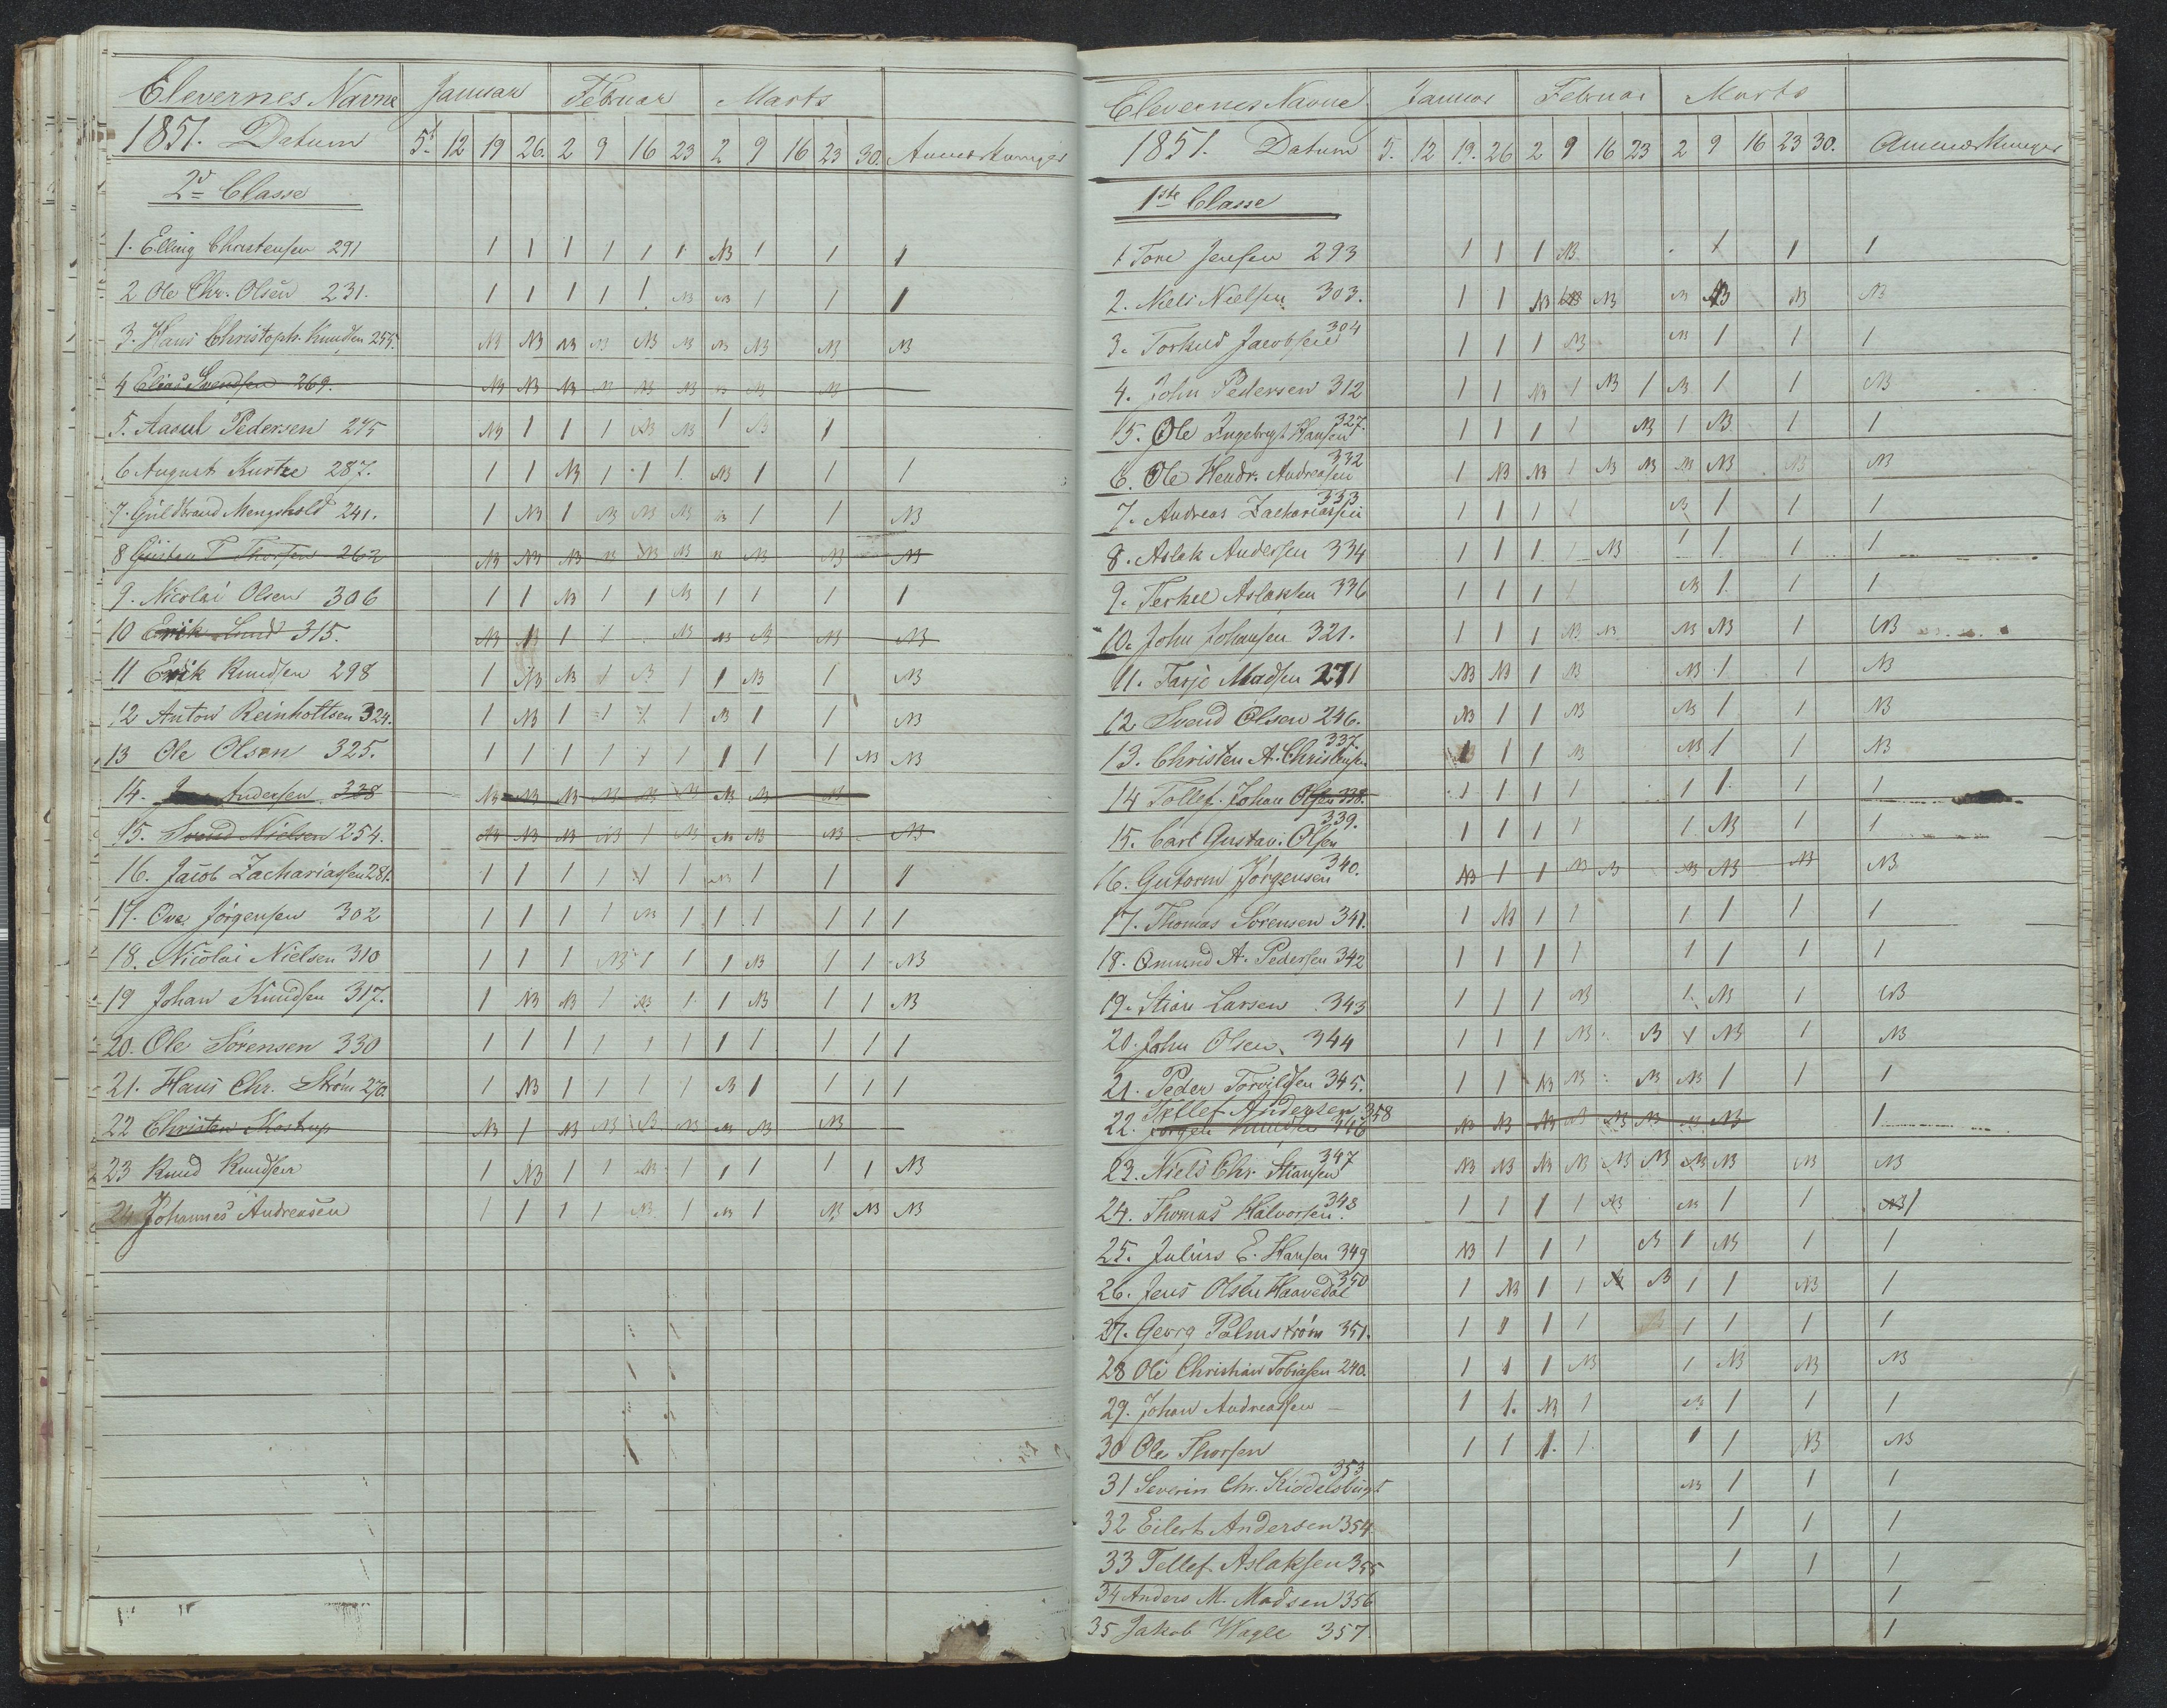 Elevernes Navne Januar Februar Marts
1851. Datum 5t 12 19 26. 2 9 16 23 2 9 16 23 30. Anmerkninger
2d Classe
1. Elling Christensen 291 1 1 1 1 1 1 NB 1 1 1
2 Ole Chr. Olsen 231. 1 1 1 1 1 NB NB 1 1 1
3. Hans Christoph. Knudsen 255. NB NB NB NB NB NB NB NB NB NB
4 Elias Svendsen 269. NB NB NB NB NB NB NB NB NB
5. Aasul Pedersen 275 NB 1 1 1 NB NB 1 NB 1
6 August Kurtze 287. 1 1 NB 1 1 1 NB 1 1 1
7. Guldbrand Mengshold 241. 1 NB 1 NB NB NB NB 1 1 NB
8 Gusten T Thorsen 262 NB NB NB NB NB NB NB NB NB NB
9. Nicolai Olsen 306 1 1 NB 1 1 NB 1 1 1 1
10 Erik Lund 315. NB NB 1 1 NB NB NB NB NB
11 Erik Knudsen 298 1 NB NB 1 NB 1 1 NB 1 NB
12 Anton Reinholtsen 324. 1 NB 1 1 1 1 NB 1 1 NB
13 Ole Olsen 325. 1 1 1 1 1 1 1 1 1 NB NB
14. Andersen 328 NB NB NB NB NB NB NB NB NB
15. Svend Nielsen 254. NB NB NB NB 1 NB NB NB NB NB
16. Jacob Zachariassen 281. 1 1 1 1 1 1 NB 1 1 1
17. Ove Jørgensen 302 1 1 1 1 NB 1 1 1 1 1 1
18. Nicolai Nielsen 310 1 1 1 NB 1 1 1 NB 1 1 NB
19 Johan Knudsen 317. 1 NB NB 1 NB 1 1 NB 1 1 NB
20. Ole Sørensen 330 1 1 1 1 1 1 1 1 1 1 1
21. Hans Chr. Strøm 270. 1 NB 1 1 1 1 NB 1 1 1 1
22 Christen Mostrup NB 1 NB NB NB NB NB NB NB
23 Knud Knudsen 1 NB 1 1 NB 1 1 1 1 1 NB
24 Johannes Andreasen 1 1 1 1 NB 1 NB 1 NB NB NB
Elevernes Navne Januar Februar Marts
1851. Datum 5. 12 19. 26 2 9 16 23 2 9 16 23 30. Anmærkninger
1ste Classe
1 Tore Jensen 293 1 1 1 NB 1 1 1
2. Niels Nielsen 303. 1 1 NB NB NB NB NB NB NB
3. Torkild Jacobsen 304 1 1 1 NB NB 1 1 1
4. John Pedersen 312 1 1 NB 1 NB 1 NB 1 1 NB
5. Ole Ingebrigt Hansen 327. 1 1 1 1 NB 1 NB 1 1
6. Ole Hendr. Andreasen 332 1 NB NB 1 NB NB NB NB NB NB
7. Andreas Zachariassen 333 1 1 1 1 NB 1 1 1
8. Aslak Andersen 334 1 1 1 1 NB 1 1 1 1
9. Terkel Aslaksen 336 1 1 1 1 NB 1 1 1
10. John Johansen 321. 1 1 1 NB NB NB NB 1 NB
11. Tarje Madsen 271 NB NB 1 NB NB 1 1 NB
12 Svend Olsen 246. NB 1 1 NB NB 1 1 NB
13. Christen A. Christensen 337. 1 1 1 NB NB 1 1 NB
14 Tollef Johan Olsen 338. 1 1 1 1 1 1 1 1
15. Carl Gustav. Olsen 339. 1 1 1 1 1 NB 1 1
16. Gutorm Jörgensen 340. NB 1 1 NB NB NB NB NB NB
17. Thomas Sörensen 341. 1 NB 1 1 1 1 1 1
18. Omund A. Pedersen 342 1 1 1 1 1 1 1 1
19. Stian Larsen 343 1 1 1 NB 1 NB 1 NB
20. John Olsen 344 1 1 1 NB NB 1 NB 1 NB
21. Peder Torvildsen 345. 1 1 NB NB NB NB 1 1 1
22. Tellef Andersen 358
Jørgen Knudsen 346 NB NB NB NB NB NB NB NB 1
23. Niels Chr. Stiansen 347 NB NB NB NB NB NB NB NB NB NB
24. Thomas Halvorsen 348. 1 1 1 1 NB NB 1 1 NB 1
25. Julius E. Hansen 349 NB 1 1 1 NB 1 NB 1 1
26. Jens Olsen Haavedal 350 1 NB 1 1 NB NB 1 1 NB 1
27. Georg Palmström 351. 1 1 1 1 NB 1 1 1 1
28 Ole Christian Tobiasen 240. 1 1 1 NB 1 NB NB NB
29. Johan Andreassen — 1 1. NB 1 NB 1 1 1
30 Ole Thorsen 1 1 1. 1. 1 1 NB NB
31 Severin Chr. 353 NB 1 1 1
32 Eilert Andersen 354 1 1 1
33 Tellef Aslaksen 355 1 1 1
34 Anders M. Madsen 356 1
35 Jakob Wagle 357. 1